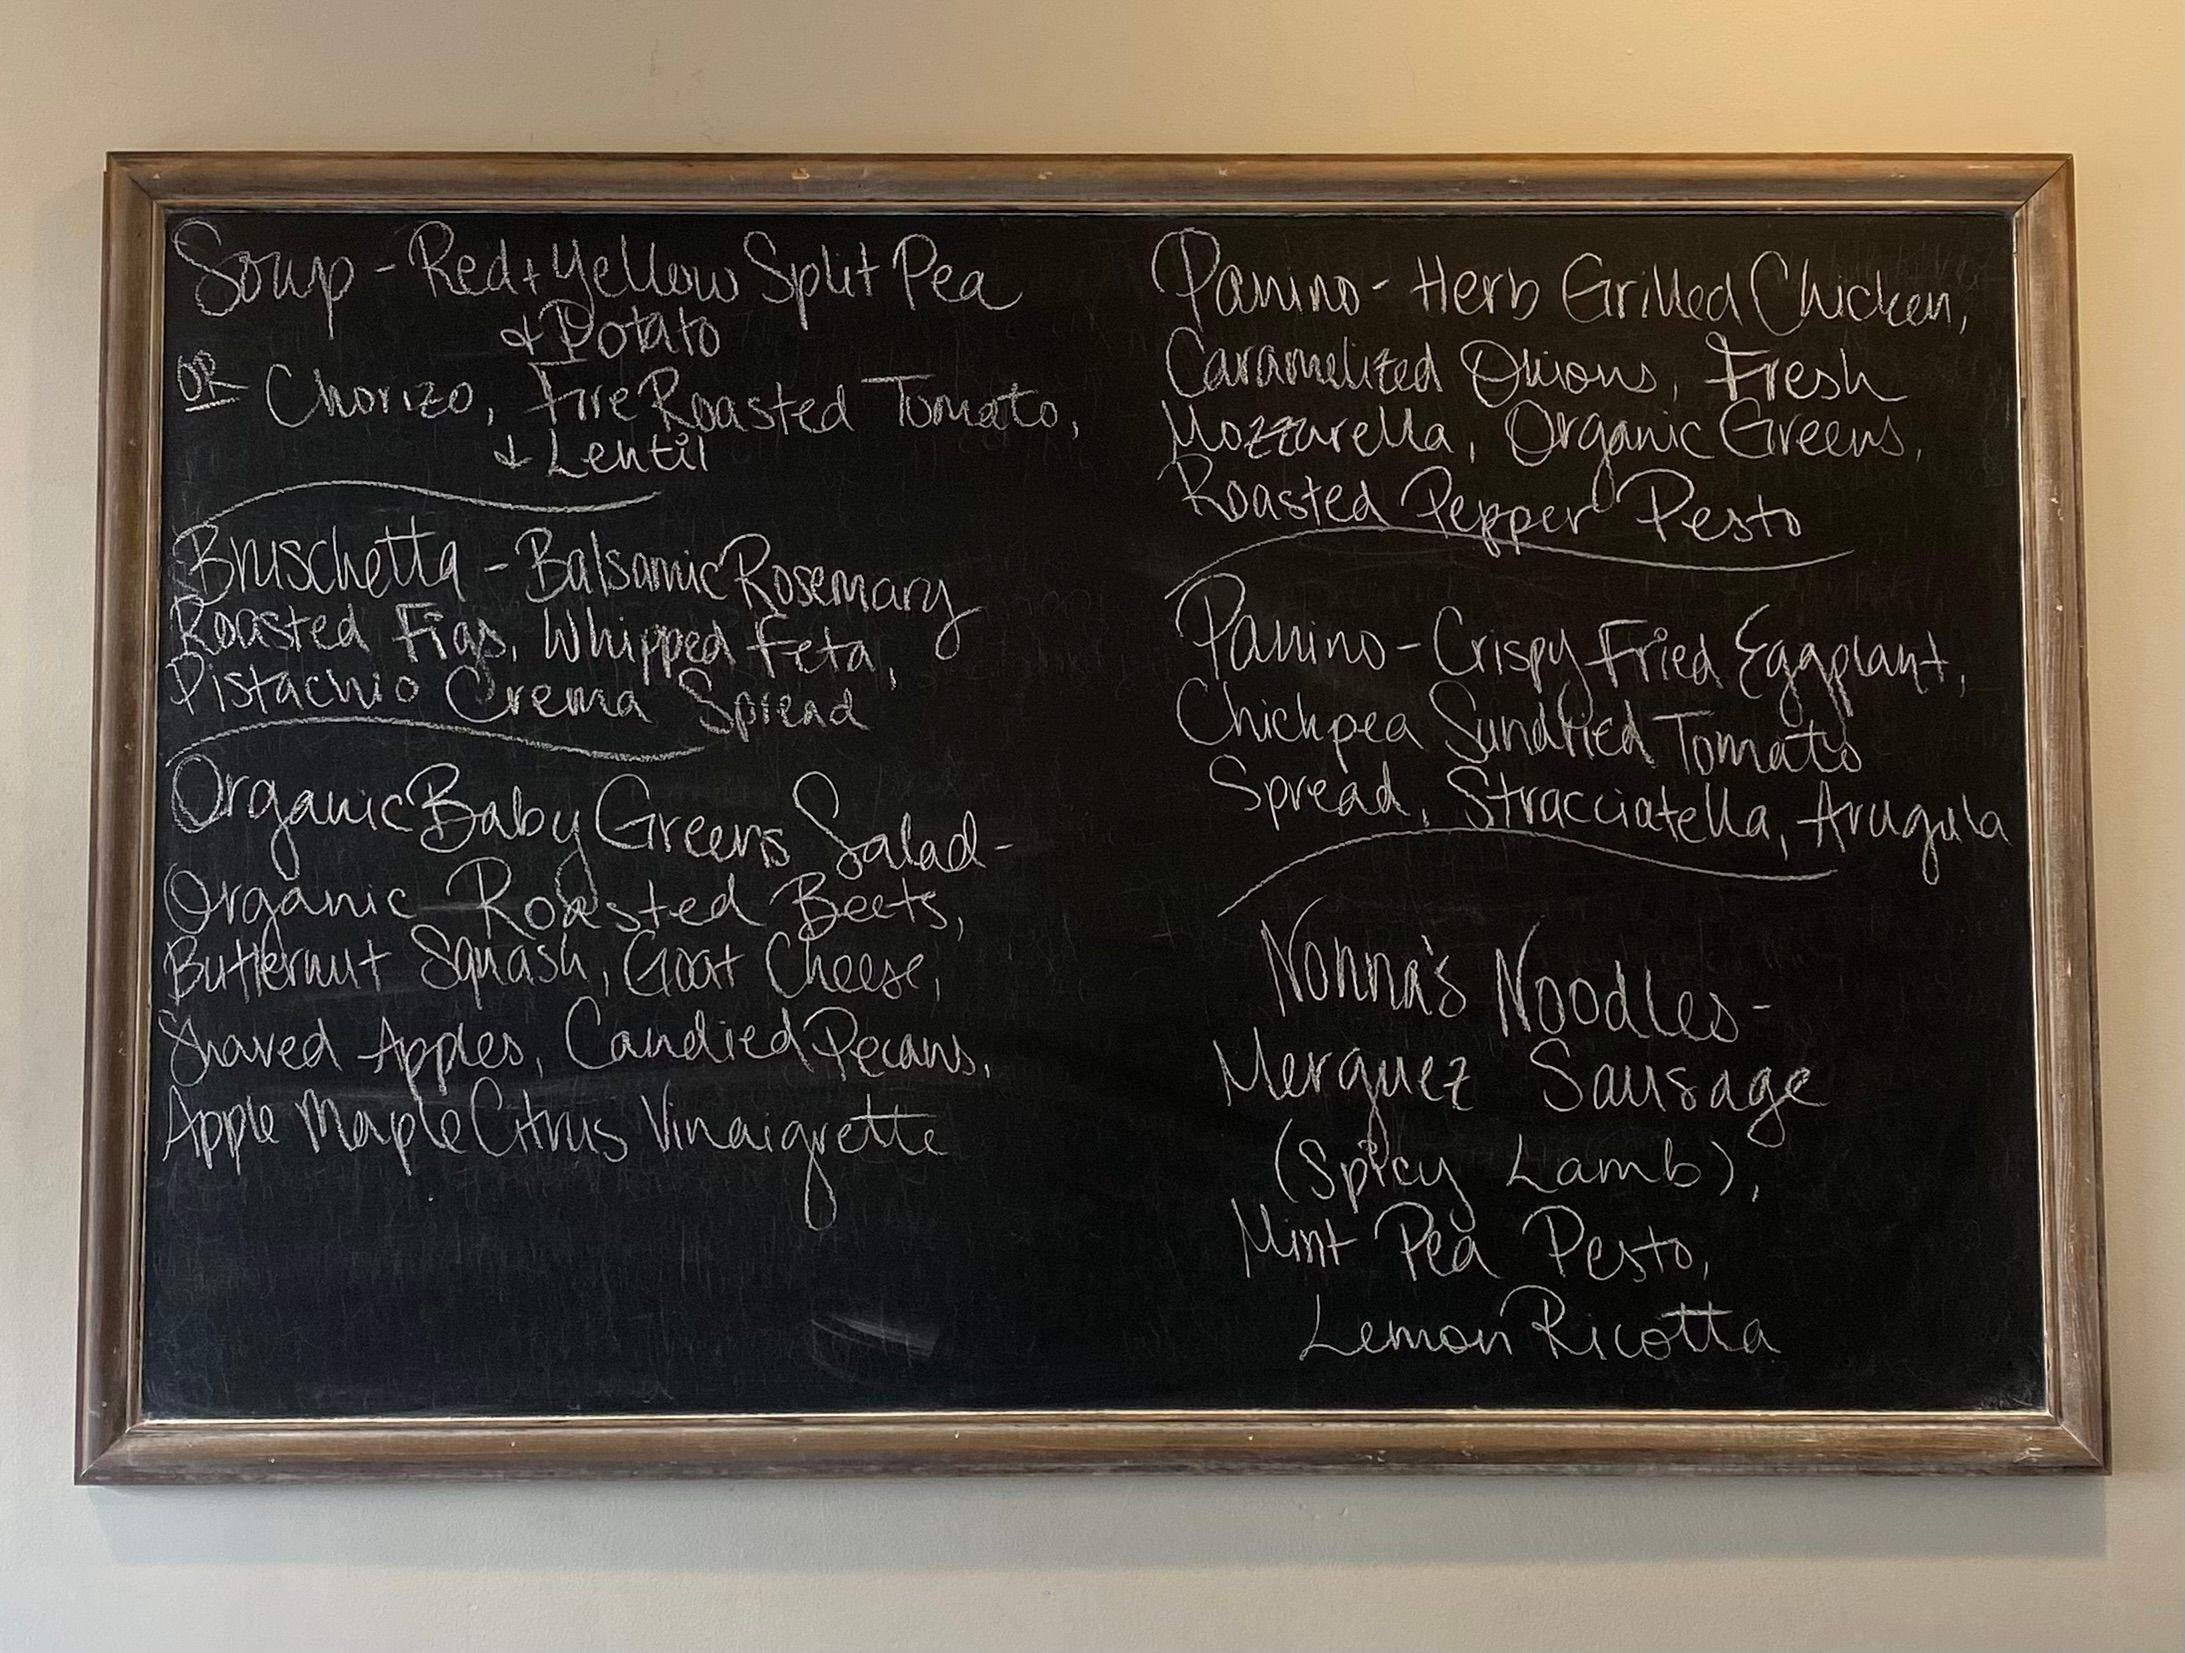 Soup - Red + Yellow Split Pea
+ Potato
OR Chorizo, Fire Roasted Tomato,
+ Lentil
Bruschetta - Balsamic Rosemary
Roasted Figs, Whipped Feta,
Pistachio Crema Spread
Organic Baby Greens Salad -
Organic Roasted Beets,
Butternut Squash, Goat Cheese,
Shaved Apples, Candied Pecans,
Apple Maple Citrus Vinaigrette
Panino - Herb Grilled Chicken,
Caramelized Onions, Fresh
Mozzarella, Organic Greens,
Roasted Pepper Pesto
Panino - Crispy Fried Eggplant,
Chickpea Sundried Tomato
Spread, Stracciatella, Arugula
Nonna's Noodles -
Merguez Sausage
(Spicy Lamb),
Mint Pea Pesto,
Lemon Ricotta